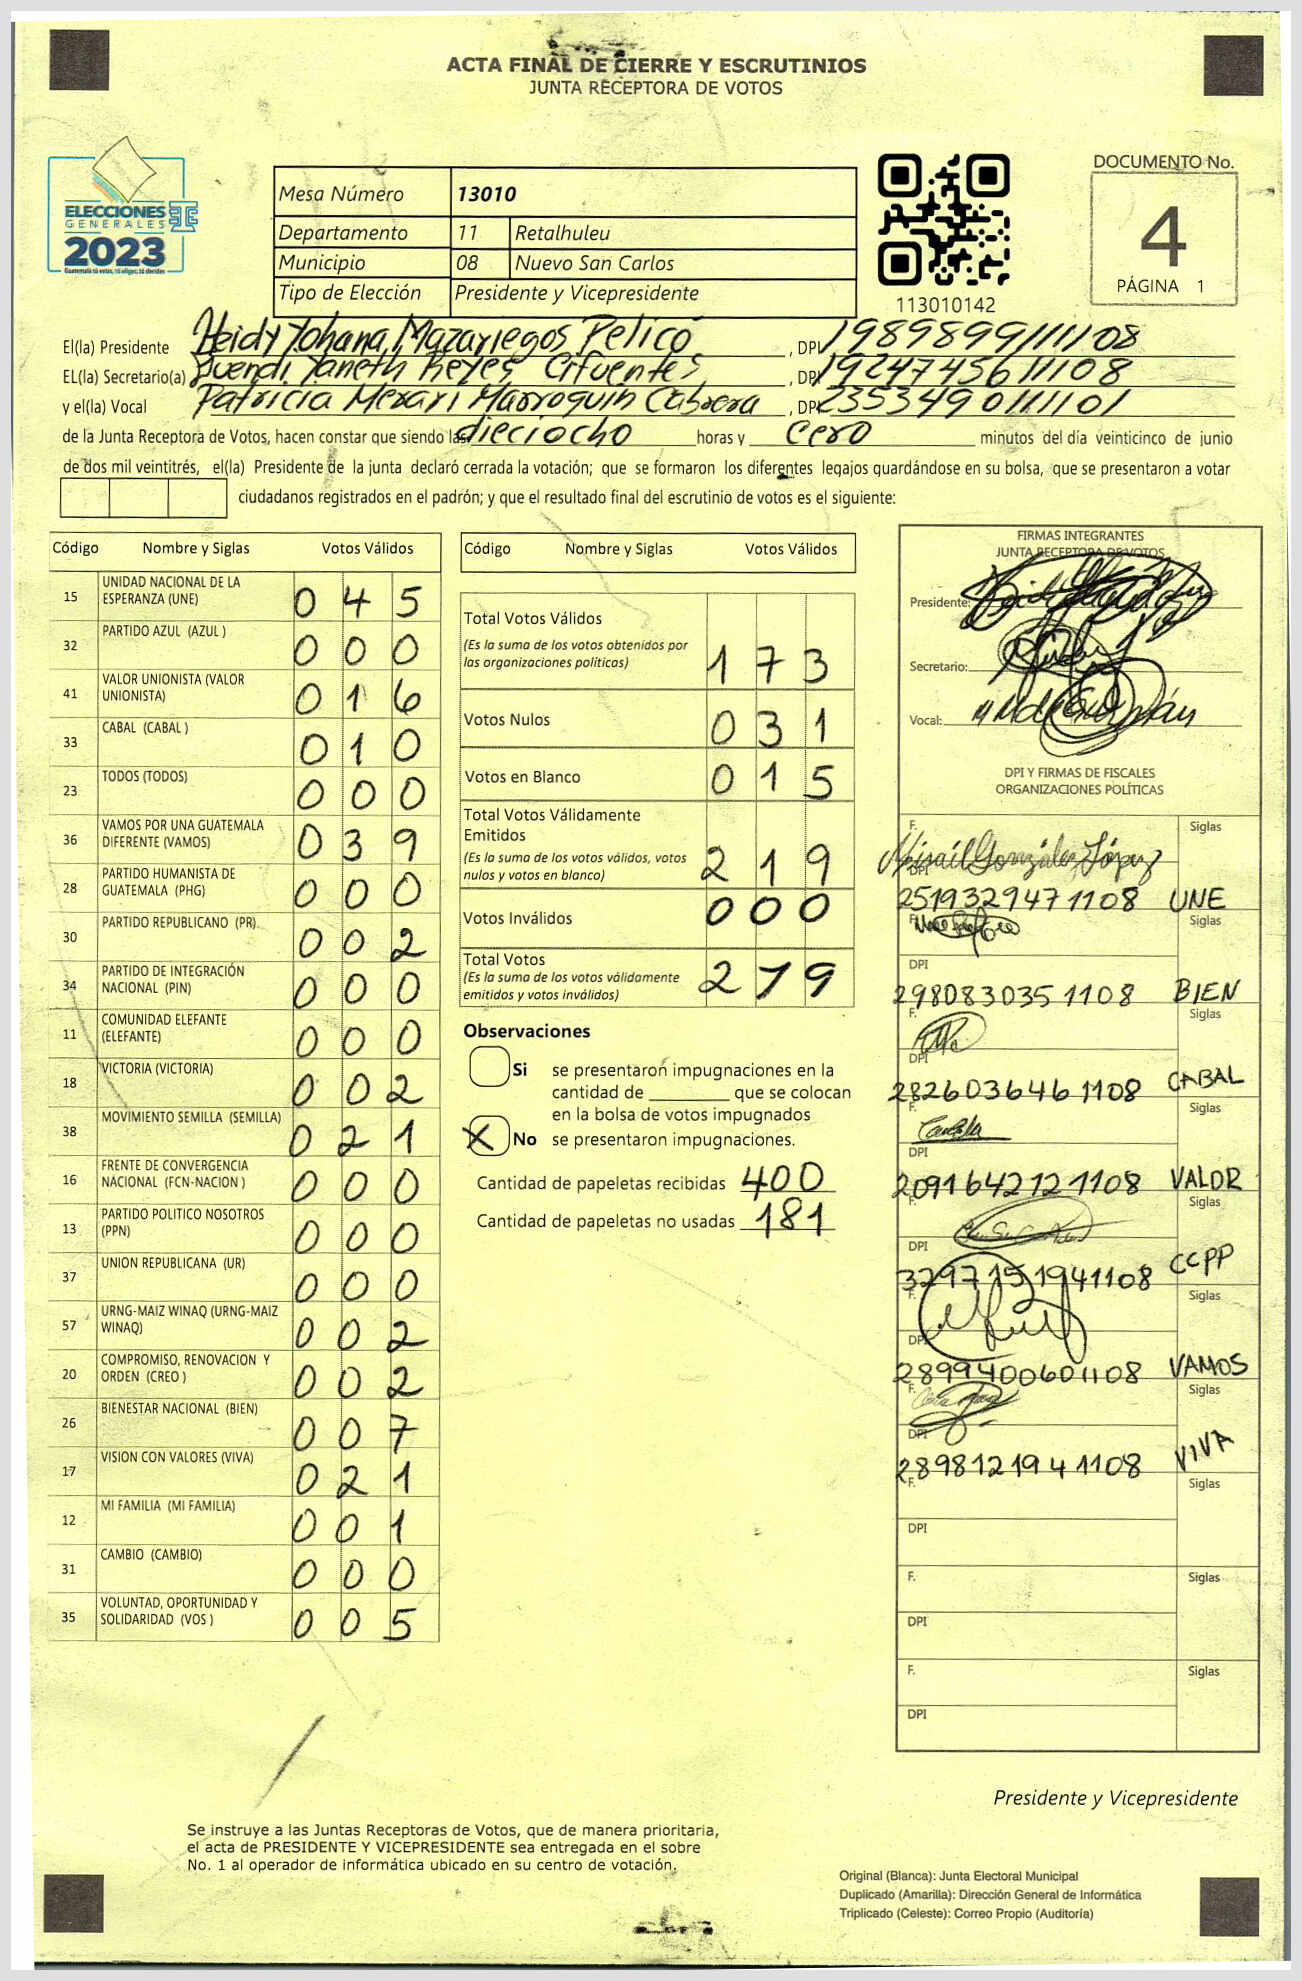 ACTA FINAL DE CIERRE Y ESCRUTINIOS
JUNTA RECEPTORA DE VOTOS
ELECCIONES
GENERALES
2023
Guatemala tú votas, tú eliges, tú decides
Mesa Número 13010
Departamento 11 Retalhuleu
Municipio 08 Nuevo San Carlos
Tipo de Elección Presidente y Vicepresidente
113010142
DOCUMENTO No.
4
PÁGINA 1
El(la) Presidente Heidy Yohana Mazariegos Pelicó, DPI 1989899111108
EL(la) Secretario(a) Yaneth Reyes Cifuentes, DPI 1924745611108
y el(la) Vocal Patricia Merari Marroquin Cabrera, DPI 2353490111101
de la Junta Receptora de Votos, hacen constar que siendo las dieciocho horas y cero minutos del día veinticinco de junio
de dos mil veintitrés, el(la) Presidente de la junta declaró cerrada la votación; que se formaron los diferentes legajos guardándose en su bolsa, que se presentaron a votar
ciudadanos registrados en el padrón; y que el resultado final del escrutinio de votos es el siguiente:
Código Nombre y Siglas Votos Válidos
15 UNIDAD NACIONAL DE LA ESPERANZA (UNE) 0 4 5
32 PARTIDO AZUL (AZUL ) 0 0 0
41 VALOR UNIONISTA (VALOR UNIONISTA) 0 1 6
33 CABAL (CABAL ) 0 1 0
23 TODOS (TODOS) 0 0 0
36 VAMOS POR UNA GUATEMALA DIFERENTE (VAMOS) 0 3 9
28 PARTIDO HUMANISTA DE GUATEMALA (PHG) 0 0 0
30 PARTIDO REPUBLICANO (PR) 0 0 2
34 PARTIDO DE INTEGRACIÓN NACIONAL (PIN) 0 0 0
11 COMUNIDAD ELEFANTE (ELEFANTE) 0 0 0
18 VICTORIA (VICTORIA) 0 0 2
38 MOVIMIENTO SEMILLA (SEMILLA) 0 2 1
16 FRENTE DE CONVERGENCIA NACIONAL (FCN-NACION ) 0 0 0
13 PARTIDO POLITICO NOSOTROS (PPN) 0 0 0
37 UNION REPUBLICANA (UR) 0 0 0
57 URNG-MAIZ WINAQ (URNG-MAIZ WINAQ) 0 0 2
20 COMPROMISO, RENOVACION Y ORDEN (CREO ) 0 0 2
26 BIENESTAR NACIONAL (BIEN) 0 0 7
17 VISION CON VALORES (VIVA) 0 2 1
12 MI FAMILIA (MI FAMILIA) 0 0 1
31 CAMBIO (CAMBIO) 0 0 0
35 VOLUNTAD, OPORTUNIDAD Y SOLIDARIDAD (VOS ) 0 0 5
Código Nombre y Siglas Votos Válidos
Total Votos Válidos 1 7 3
(Es la suma de los votos obtenidos por
las organizaciones políticas)
Votos Nulos 0 3 1
Votos en Blanco 0 1 5
Total Votos Válidamente
Emitidos 2 1 9
(Es la suma de los votos válidos, votos
nulos y votos en blanco)
Votos Inválidos 0 0 0
Total Votos 2 1 9
(Es la suma de los votos válidamente
emitidos y votos inválidos)
Observaciones
Si se presentaron impugnaciones en la
cantidad de ________ que se colocan
en la bolsa de votos impugnados
X No se presentaron impugnaciones.
Cantidad de papeletas recibidas 400
Cantidad de papeletas no usadas 181
FIRMAS INTEGRANTES
JUNTA RECEPTORA DE VOTOS
Presidente:
Secretario:
Vocal:
DPI Y FIRMAS DE FISCALES
ORGANIZACIONES POLÍTICAS
F. Misaíl González López Siglas
DPI 2519329471108 UNE
F. Siglas
DPI 2980830351108 BIEN
F. Siglas
DPI 2826036461108 CABAL
F. Siglas
DPI 2091642121108 VALOR
F. Siglas
DPI 3297151941108 CCPP
F. Siglas
DPI 2899400601108 VAMOS
F. Siglas
DPI 2898121941108 VIVA
F. Siglas
DPI
F. Siglas
DPI
F. Siglas
DPI
Presidente y Vicepresidente
Se instruye a las Juntas Receptoras de Votos, que de manera prioritaria,
el acta de PRESIDENTE Y VICEPRESIDENTE sea entregada en el sobre
No. 1 al operador de informática ubicado en su centro de votación.
Original (Blanca): Junta Electoral Municipal
Duplicado (Amarilla): Dirección General de Informática
Triplicado (Celeste): Correo Propio (Auditoría)